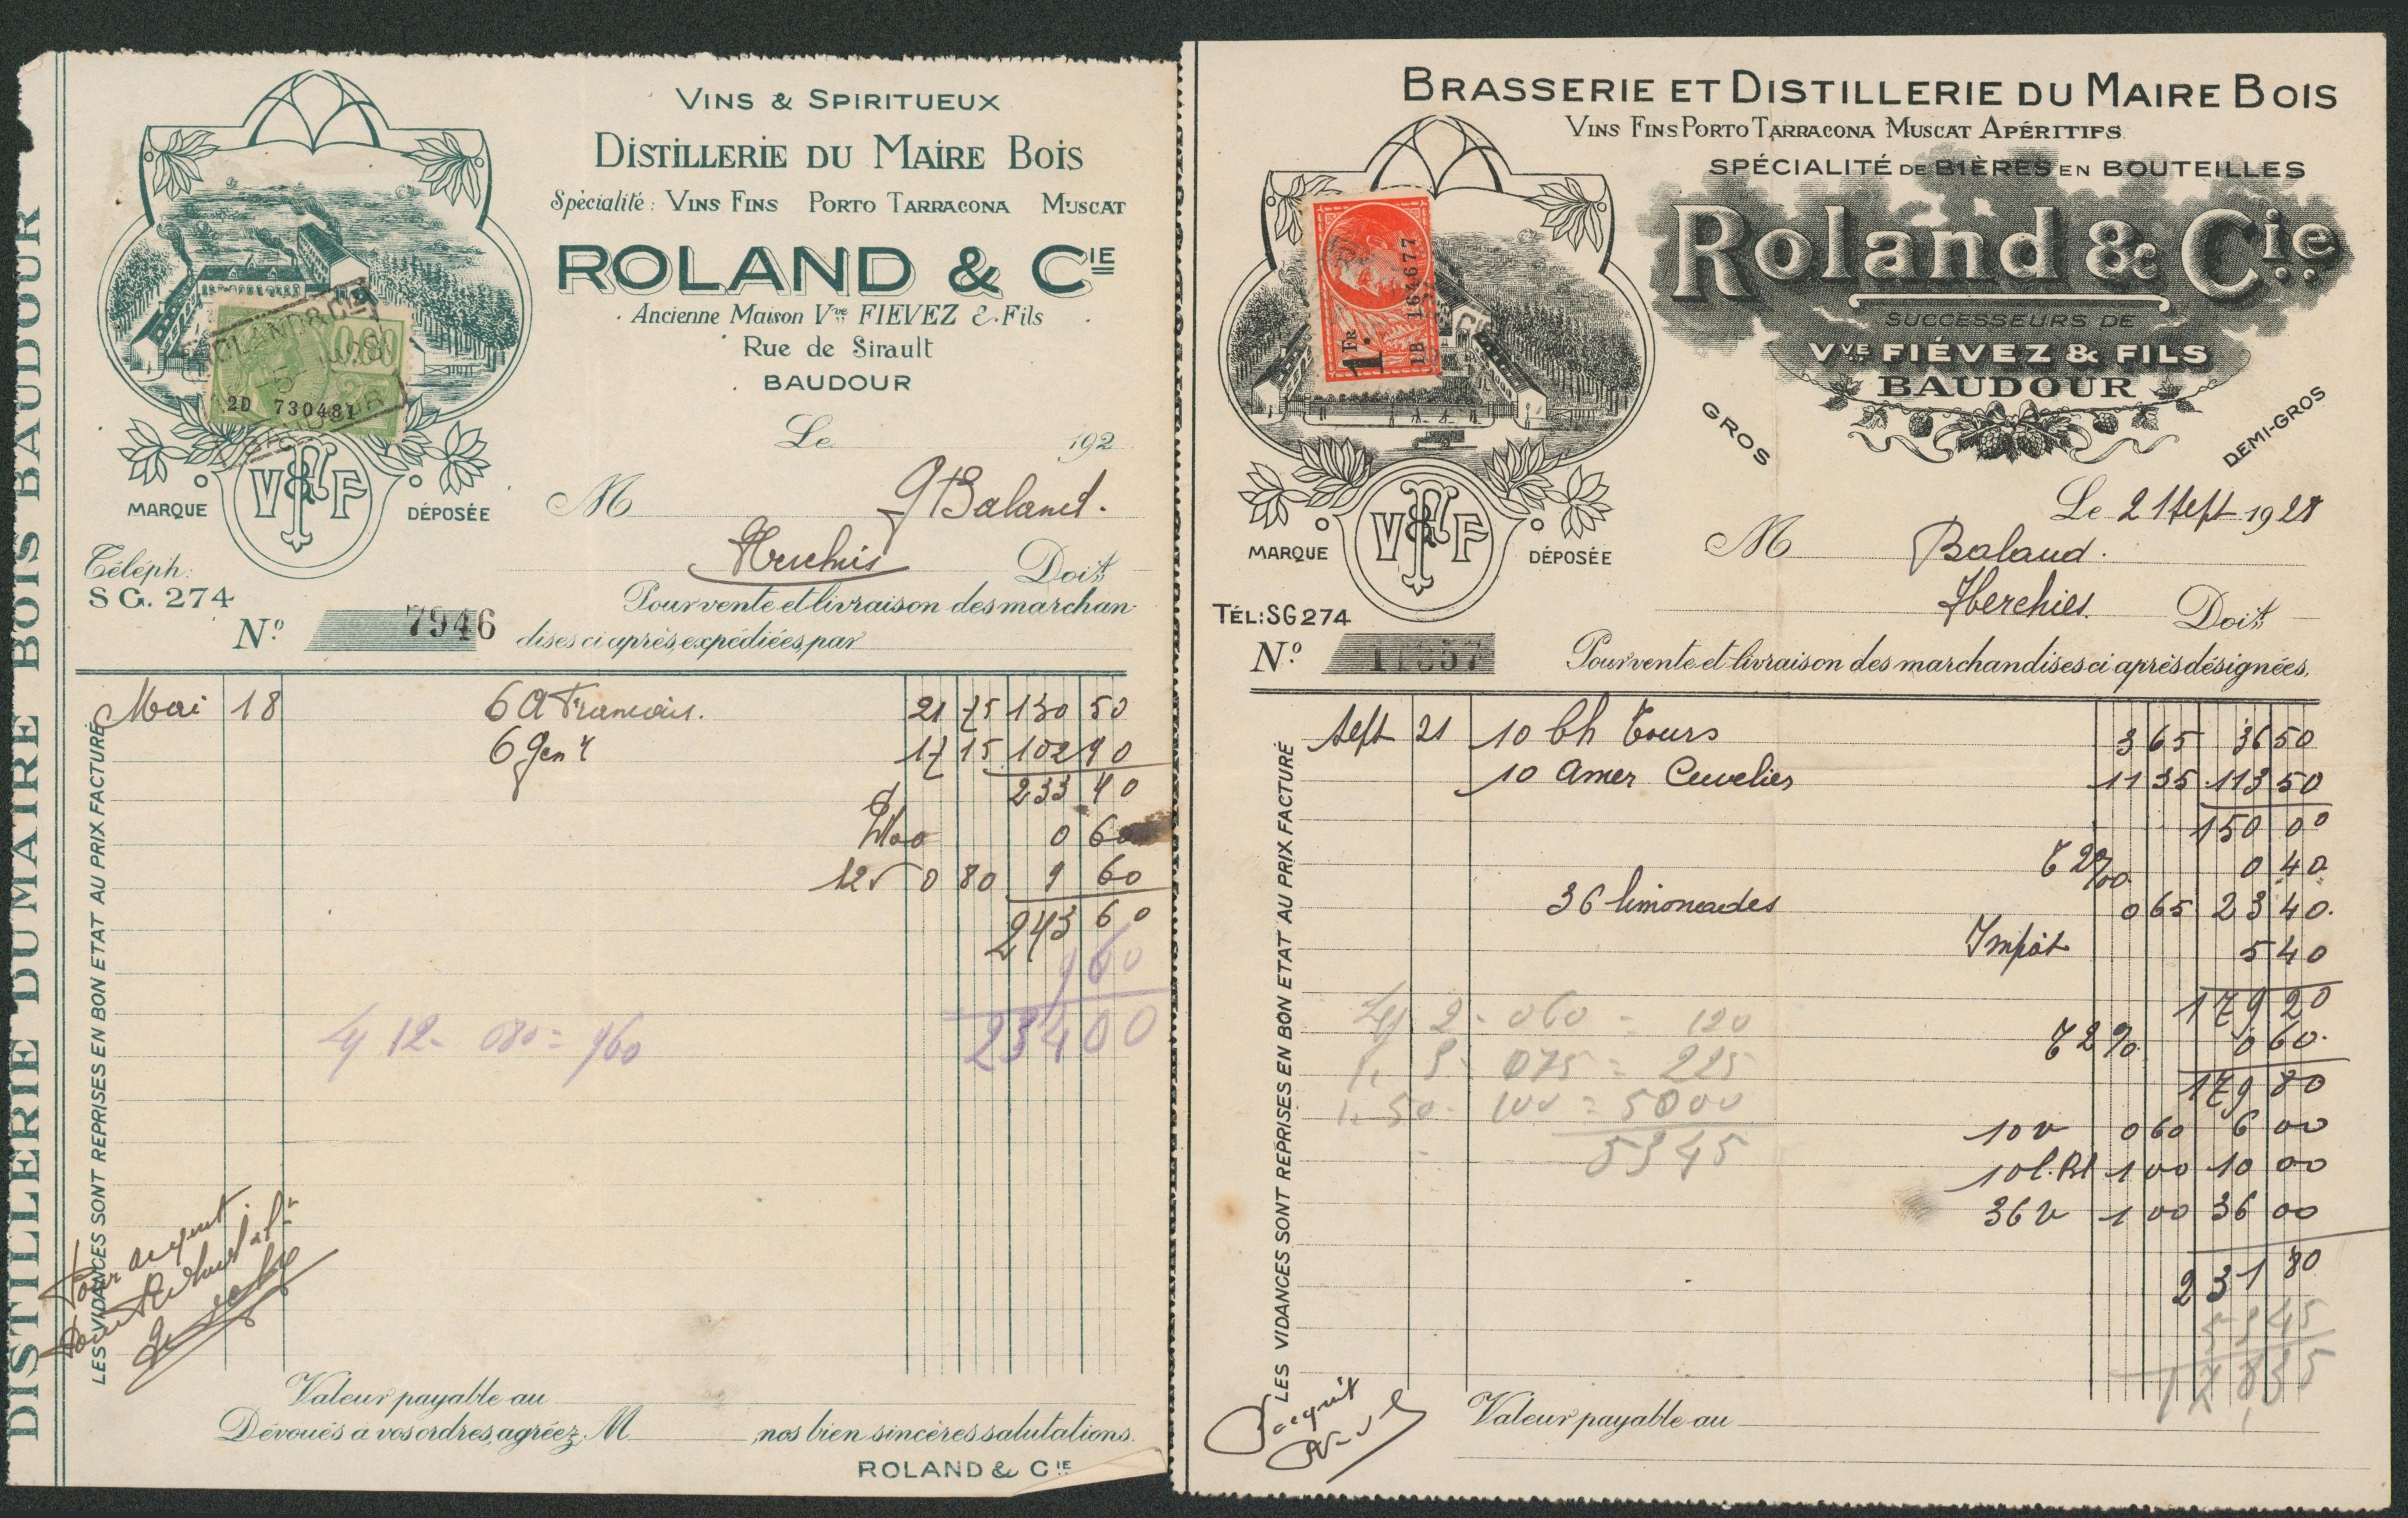 DISTILLERIE DU MAIRE BOIS BAUDOUR
VINS & SPIRITUEUX
DISTILLERIE DU MAIRE BOIS
Spécialité: VINS FINS PORTO TARRAGONA MUSCAT
ROLAND & CIE
Ancienne Maison Vve FIEVEZ & Fils
Rue de Sirault
BAUDOUR
ROLAND & Cie
0.80
2D 730481
BAUDOUR
V & F
MARQUE DÉPOSÉE
Le 192
M G Baland.
Herchies Doit
Téléph:
SG. 274
No 7946
Pour vente et livraison des marchan
dises ci après, expédiées, par
Mai 18 6 A Francais. 21 75 130 50
6 Gen 17 15 102 90
233 40
0 60
12 v 0 80 9 60
243 60
9 60
234 00
12 - 080 = 960
LES VIDANCES SONT REPRISES EN BON ETAT AU PRIX FACTURÉ
Pour acquit
Valeur payable au
Dévoués à vos ordres, agréez, M nos bien sincères salutations.
ROLAND & CIE
BRASSERIE ET DISTILLERIE DU MAIRE BOIS
VINS FINS PORTO TARRAGONA MUSCAT APÉRITIFS
SPÉCIALITÉ DE BIÈRES EN BOUTEILLES
Roland & Cie
SUCCESSEURS DE
VVE FIÉVEZ & FILS
BAUDOUR
GROS DEMI-GROS
1 FR
1B 164677
V & F
MARQUE DÉPOSÉE
Le 21 Sept 1928
M Baland.
Herchies. Doit
TÉL: SG 274
No 11357
Pour vente et livraison des marchandises ci après désignées.
Sept 21 10 Ch Tours 3 65 36 50
10 Amer Cuvelier 11 35 113 50
150 00
T 2%00 0 40
36 limonades 0 65 23 40
Impôt 5 40
179 20
T 2% 0 60
179 80
10 v 0 60 6 00
10 l. 1 00 10 00
36 v 1 00 36 00
231 80
53 45
2 - 060 = 120
3 - 075 = 225
50 - 100 = 5000
5345
LES VIDANCES SONT REPRISES EN BON ETAT AU PRIX FACTURÉ
Pr acquit
Valeur payable au